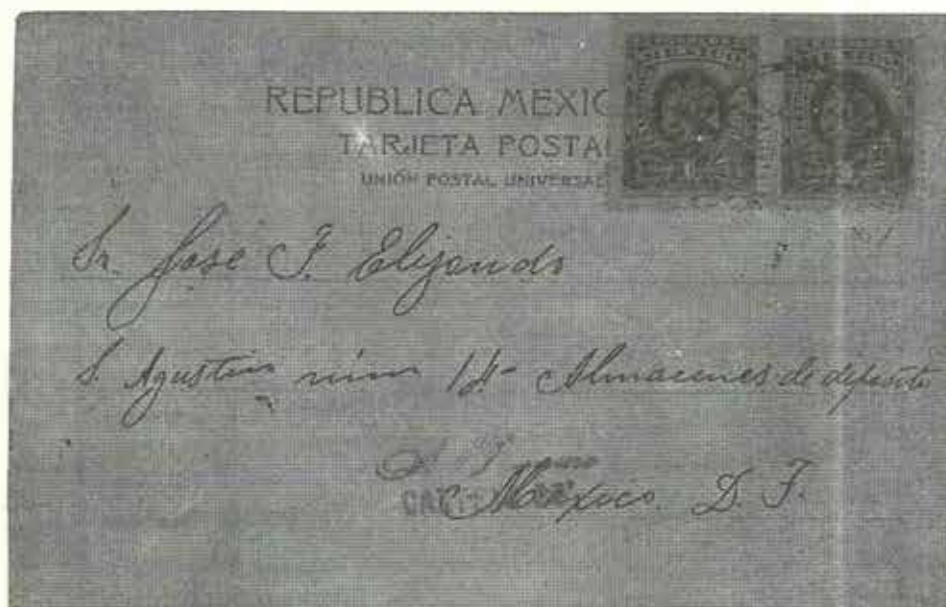 REPUBLICA MEXIC
TARJETA POSTA
UNIÓN POSTAL UNIVERSAL
Sr. José F. Elizondo
S. Agustin núm 14- Almacenes de depósito
Mexico. D. F.